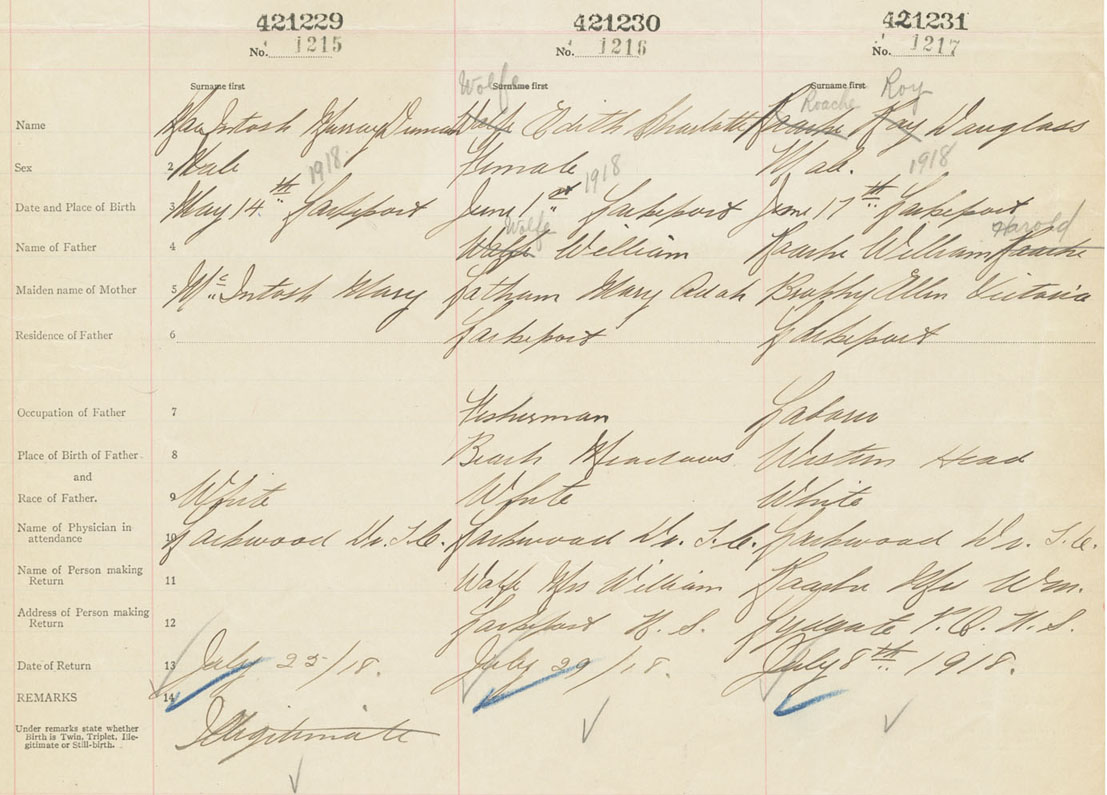 421229 421230 421231
No. 1215 No. 1216 No. 1217
Surname first Wolfe Surname first Surname first Roache Roy
Name MacIntosh Murray Duncan Wolfe Edith Charlotte Roache Ray Douglass
Sex 2 Male Female Male.
1918. 1918 1918
Date and Place of Birth 3 May 14th Lockeport June 1st Lockeport June 17th Lockeport
Wolfe Harold
Name of Father 4 William Roache William Roache
Maiden name of Mother 5 McIntosh Mary Latham Mary Adah Brophy Ellen Victoria
Residence of Father 6 Lockeport Lockeport
Occupation of Father 7 Fisherman Laborer
Place of Birth of Father 8 Beach Meadows Western Head
and
Race of Father. 9 White White White
Name of Physician in
attendance 10 Lockwood Dr. T.C. Lockwood Dr. T.C. Lockwood Dr. T.C.
Name of Person making
Return 11 Mrs William Roache Mrs Wm.
Address of Person making
Return 12 Lockeport N.S. Lydgate P.O. N.S.
Date of Return 13 July 25/18. July 29/18. July 8th 1918.
REMARKS 14
Under remarks state whether
Birth is Twin, Triplet, Ille-
gitimate or Still-birth. Illegitimate